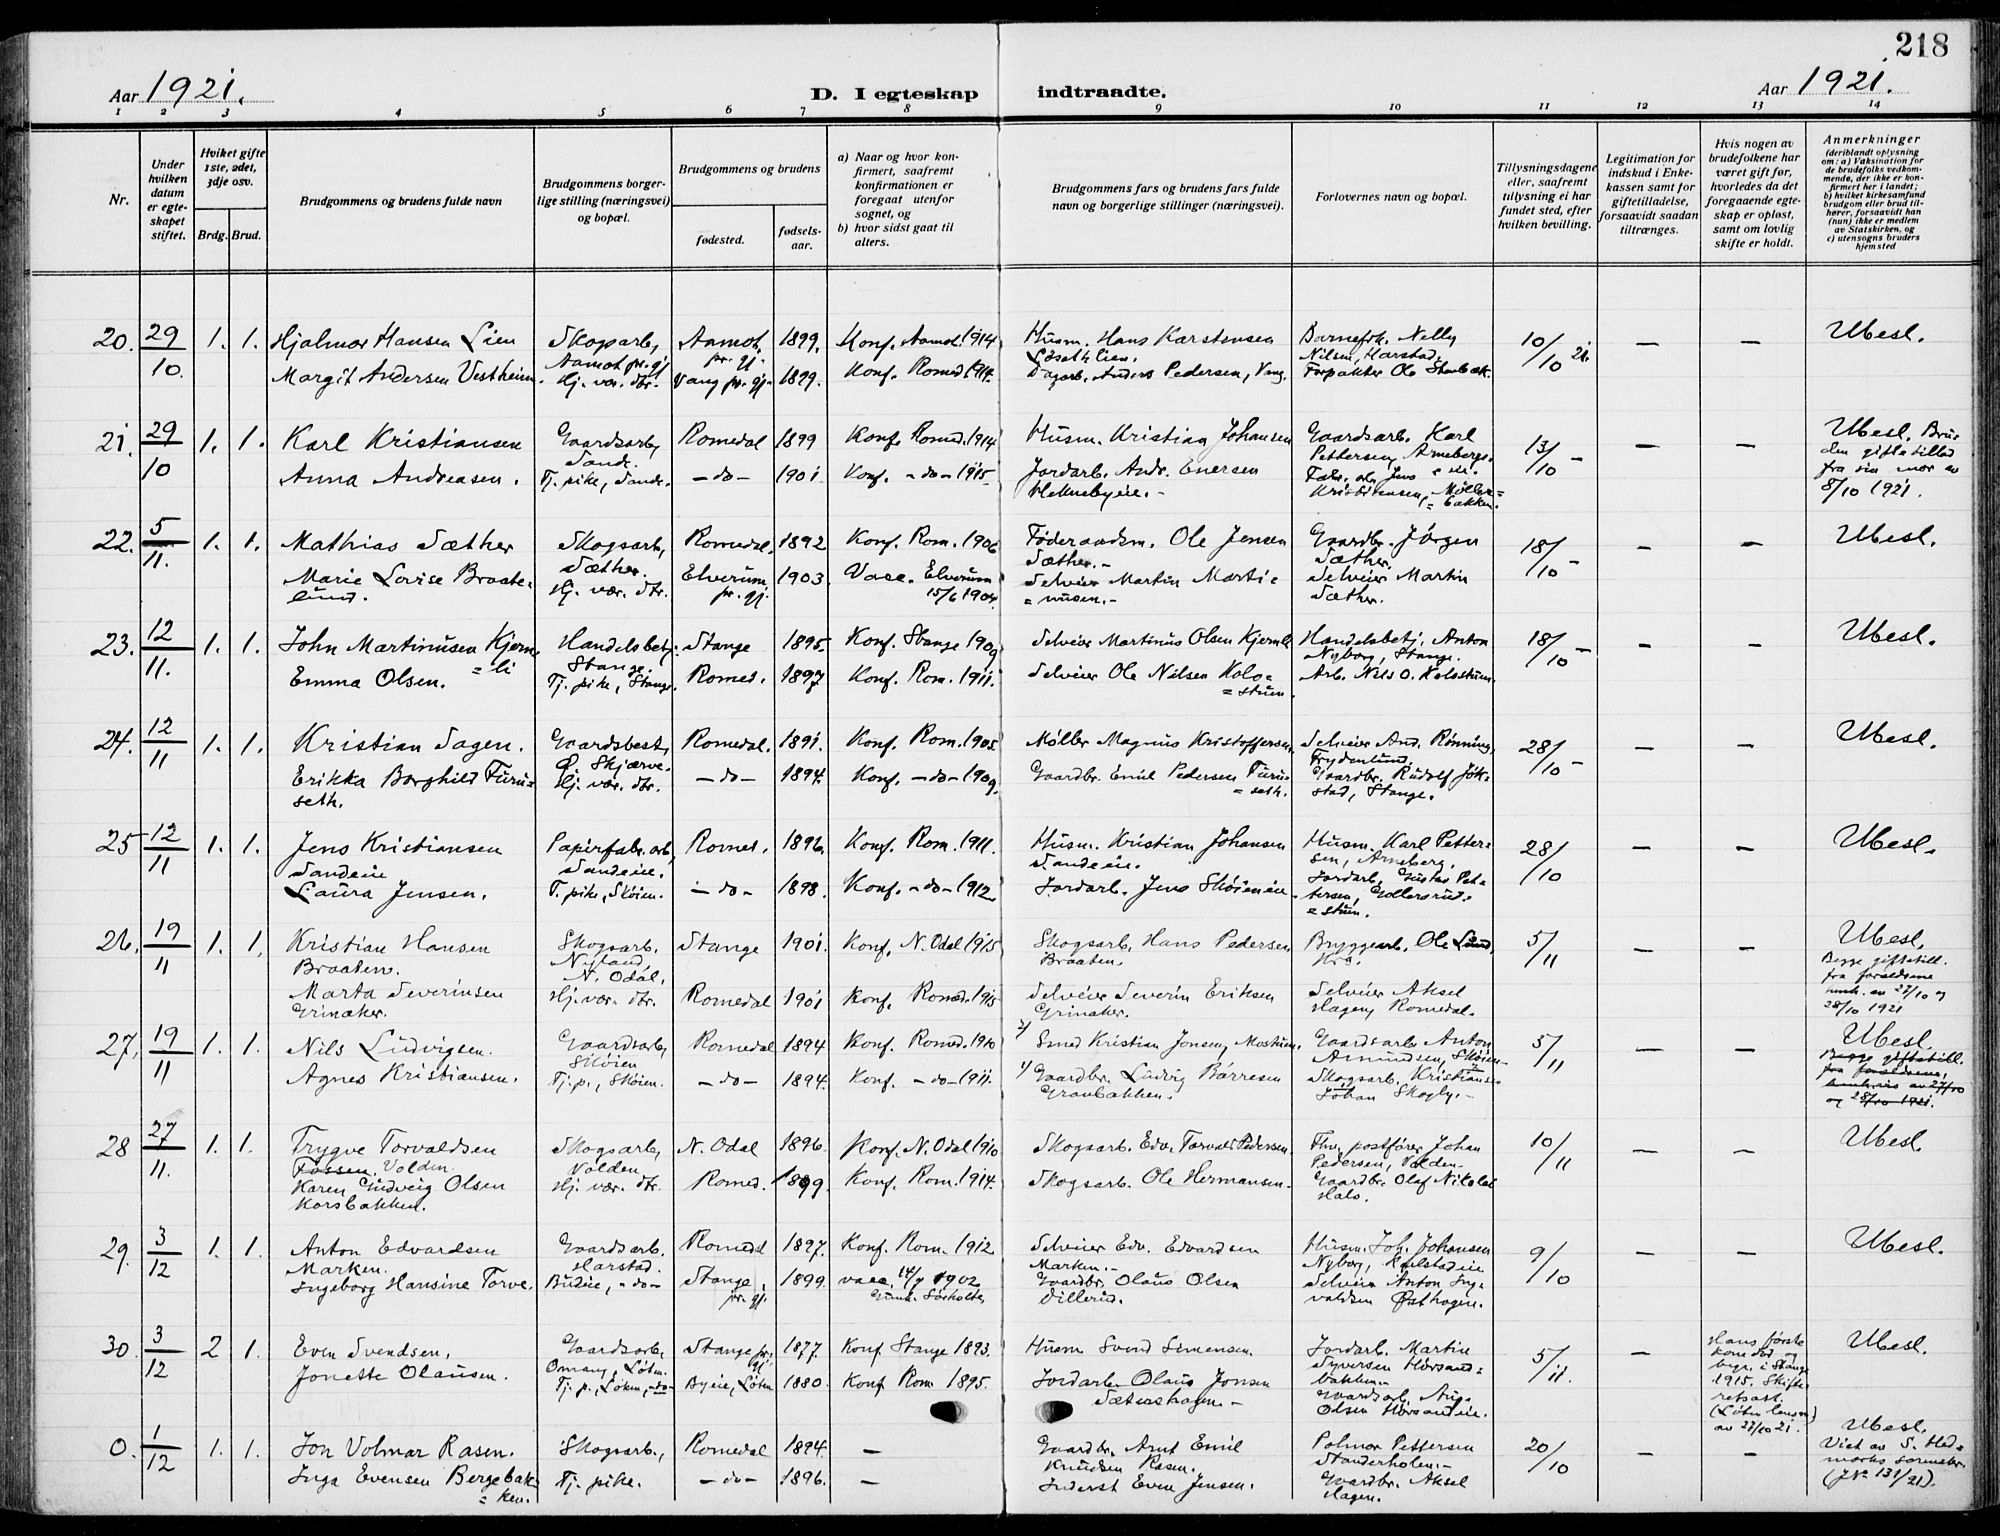 218
Aar 1921. D. I egteskap indtraadte. Aar 1921.
1 2 3 4 5 6 7 8 9 10 11 12 13 14
Nr.
Under hvilken datum er egteskapet stiftet.
Hvilket gifte 1ste, 2det, 3dje osv.
Brdg. Brud.
Brudgommens og brudens fulde navn
Brudgommens borgerlige stilling (næringsvei) og bopæl.
Brudgommens og brudens
fødested. fødselsaar.
a) Naar og hvor konfirmert, saafremt konfirmationen er foregaat utenfor sognet, og
b) hvor sidst gaat til alters.
Brudgommens fars og brudens fars fulde navn og borgerlige stillinger (næringsvei).
Forlovernes navn og bopæl.
Tillysningsdagene eller, saafremt tillysning ei har fundet sted, efter hvilken bevilling.
Legitimation for indskud i Enkekassen samt for giftetilladelse, forsaavidt saadan tiltrænges.
Hvis nogen av brudefolkene har været gift før, hvorledes da det foregaaende egteskap er opløst, samt om lovlig skifte er holdt.
Anmerkninger (deriblandt oplysning om: a) Vaksination for de brudefolks vedkommende, der ikke er konfirmert her i landet; b) hvilket kirkesamfund brudgom eller brud tilhører, forsaavidt han (hun) ikke er medlem av Statskirken, og c) utensogns bruders hjemsted
20. 29/10. 1. 1. Hjalmar Hansen Lien Skogarb, Aamot pr. gj. Aamot, pr. gj. 1899. Konf. Aamot. 1914 Husm. Hans Karstensen Løsetlien. Barnefok. Nelly Nilsen, Harstad. 10/10 21. — — Ubesl.
Margit Andersen Vestheim. Hj. vær. dtr. Vang pr. gj. 1899. Konf. Romed. 1914. Dagarb. Anders Pedersen, Vang. Forpakter Ole Stenbæk.
21. 29/10 1. 1. Karl Kristiansen Gaardsarb, Sande. Romedal 1899 Konf. Romed. 1914 Husm. Kristian Johansen Gaardsarb. Karl Pettersen, Arnebergs= ei. 13/10 – — — Ubesl. Bruden giftetillad fra sin mor av 8/10 1921.
Anna Andreasen. Tj. pike, Sande. —do— 1901. Konf. —do— 1915. Jordarb. Andr. Enersen Heknebyeie.– Fabr. arb. Jens Kristiansen, Møller= =bakken.
22. 5/11. 1. 1. Mathias Sæther Skogsarb, Sæther. Romedal. 1892 Konf. Rom. 1906 Føderaadsm. Ole Jensen Sæther.– Gaardbr. Jørgen Sæther. 18/10 – — — Ubesl.
Marie Lovise Braate= lund. Hj. vær. dtr. Elverum pr. gj. 1903. Vacc. Elverum 15/6 1904. Selveier Martin Marti= =nusen.– Selveier Martin Sæther.
23. 12/11. 1. 1. John Martinusen Kjern= =li Handelsbetj. Stange. Stange 1895. Konf. Stange 1909 Selveier Martinus Olsen Kjernli Handelsbetj. Anton Nyborg, Stange. 18/10 – — — Ubesl.
Emma Olsen. Tj. pike, Stange. Romed. 1897 Konf. Rom. 1911. Selveier Ole Nilsen Kolo= =stuen. Arb. Nils O. Kolostuen.
24. 12/11 1. 1. Kristian Sagen. Gaardsbest, Ø. Skjærve. Romedal. 1891. Konf. Rom. 1905. Møller Magnus Kristoffersen, Selveier And. Rønning, Frydenlund. 28/10 – — — Ubesl.
Erikka Borghild Furu= seth. Hj. vær. dtr. —do— 1894. Konf. —do— 1909. Gaardbr. Emil Pedersen Furu= =seth. Gaardbr. Rudolf Jøk= stad, Stange.
25 12/11 1. 1. Jens Kristiansen Sandeie Papirfabr. arb, Sandeie. Romed. 1896. Konf. Rom. 1911. Husm. Kristian Johansen Sandeie. Husm. Karl Petter= sen, Arneberg. 28/10 — — Ubesl.
Laura Jensen. T. pike, Skøien. —do— 1898. Konf. —do— 1912 Jordarb. Jens Skøieneie Jordarb. Gustav Pet= tersen, Gollersrud= =stuen.
26. 19/11 1. 1. Kristian Hansen Braaten. Skogsarb. Nyland, N. Odal. Stange 1901. Konf. N. Odal 1915 Skogsarb. Hans Pedersen Braaten. Bryggearb. Ole Lund, Kra. 5/11 — — Ubesl. Begge giftetill. fra forældrene henh. av 27/10 og 28/10 1921
Marta Severinsen Grinaker. Hj. vær. dtr. Romedal 1901 Konf. Romed. 1915 Selveier Severin Eriksen Grinaker. Selveier Aksel Hagen, Romedal.
27. 19/11 1. 1. Nils Ludvigsen. Gaardsarb, Skøien Romedal 1894 Konf. Romed. 1910 2/ Smed Kristian Jonsen, Mostuen. Gaardsarb Anton Amundsen, Skøien. 5/11 — — Ubesl. Begge giftetill. fra forældrene, henhvis av 27/10 og 28/10 1921.
Agnes Kristiansen. Tj. p., Skøien. —do— 1894. Konf. —do— 1911. 1/ Gaardbr. Ludvig Børresen Granbakken. Skogsarb. Kristian Johan Skogly.–
28 27/11. 1. 1. Trygve Torvaldsen Fossen, Volden. Skogsarb, Volden. N. Odal 1896. Konf. N. Odal 1910 Skogsarb. Edv. Torvald Pedersen. Fhv. postfører Johan Pedersen, Volden– 10/11 — — Ubesl.
Karen Gudveig Olsen Korsbakken. Hj. vær. dtr. Romed. 1899. Konf. Rom. 1914. Skogsarb. Ole Hermansen. Gaardbr. Olaf Nikolai Hals.
29. 3/12 1. 1. Anton Edvardsen Marken. Gaardsarb. Harstad. Romedal 1897. Konf. Rom. 1912 Selveier Edv. Edvardsen Marken.– Husm. Joh. Johansen Nyborg, Hulstadeie 9/10 — — Ubesl.
Ingeborg Hansine Torve. Budeie, –do– Stange, pr. gj. 1899. vacc, 14/9 1902 Gaardbr. Olaus Olsen Dillerud. Selveier Anton Ing= valdsen Østhagen.
30. 3/12 2 1. Even Svendsen, Gaardsarb, Omang, Løten. Stange pr. gj. 1877. Konf Stange 1893. Husm Svend Simensen Jordarb. Martin Syversen Horsand= bakken.– 5/11. — Hans første kone død og begr. i Stange 1915. Skifteretsatt. (Løten lensm) av 27/10 21. Ubesl.
Jonette Olausen. Tj. p., Løten, –do– Byeie, Løten 1880. Konf Rom. 1895. Jordarb. Olaus Jonsen Sætershagen– Gaardsarb. Aug. Olsen Horsandeie.
0. 1/12 1. 1. Jon Volmar Rasen. Skogsarb., Romedal 1894. — Gaardbr. Arnt Emil Knudsen Rasen. Polmar Pettersen Standerholen.– 20/10 — — Ubesl. Viet av S. Hedmarks sorenskr. (J№ 131/21).
Inga Evensen Bergebak= =ken. Tj. pike. —do— 1896. — Inderst Even Jensen. Gaardbr. Aksel Hagen.